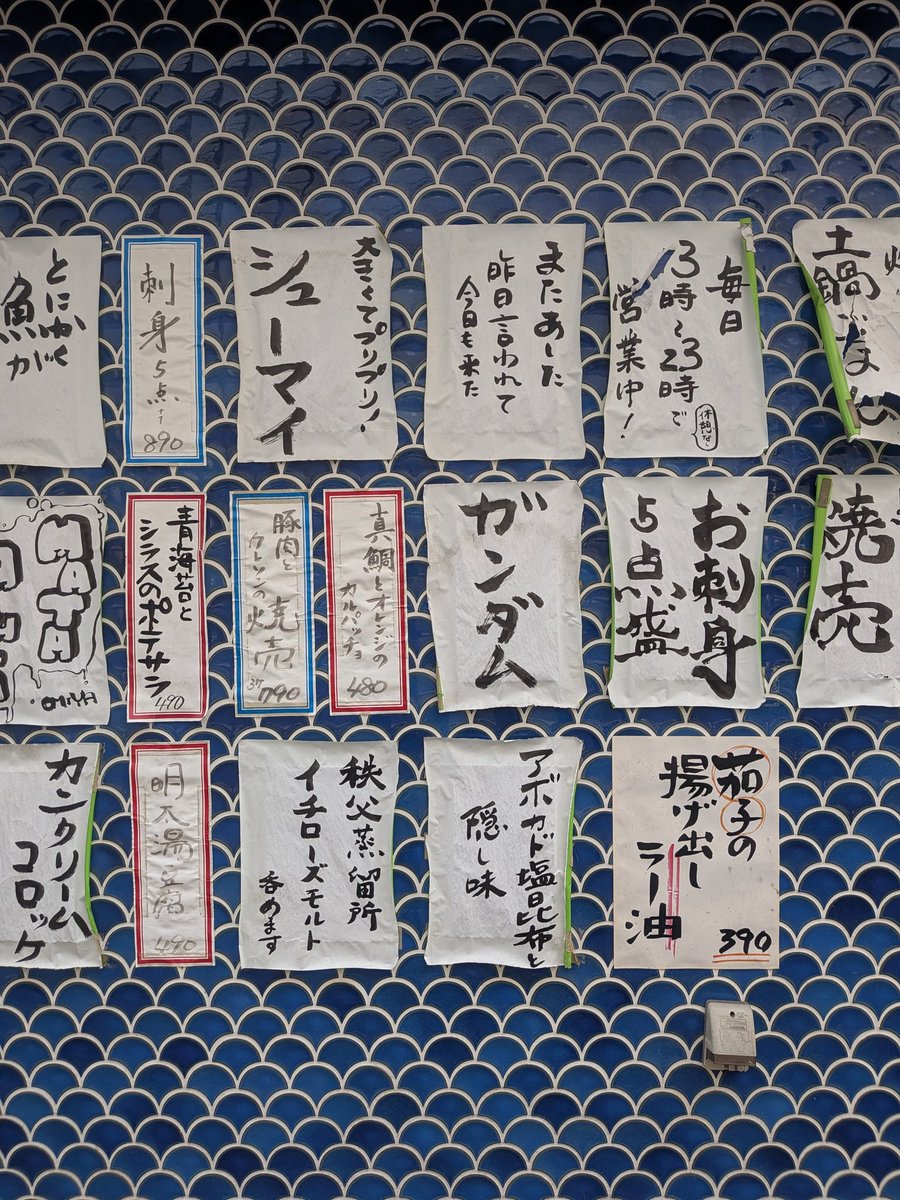 とにかく
魚が
刺身5点
890
大きくてプリプリ!
シューマイ
またあした
昨日言われて
今日も来た
毎日
13時~23時で
営業中!
休憩なし
土鍋ごはん
青海苔と
シラスのポテサラ
490
豚肉と
クレソンの焼売
790
真鯛とオレンジの
カルパッチョ
480
ガンダム
お刺身
5点盛
焼売
カニクリーム
コロッケ
明太湯豆腐
490
秩父蒸留所
イチローズモルト
呑めます
アボカド塩昆布と
隠し味
茄子の
揚げ出し
ラー油
390